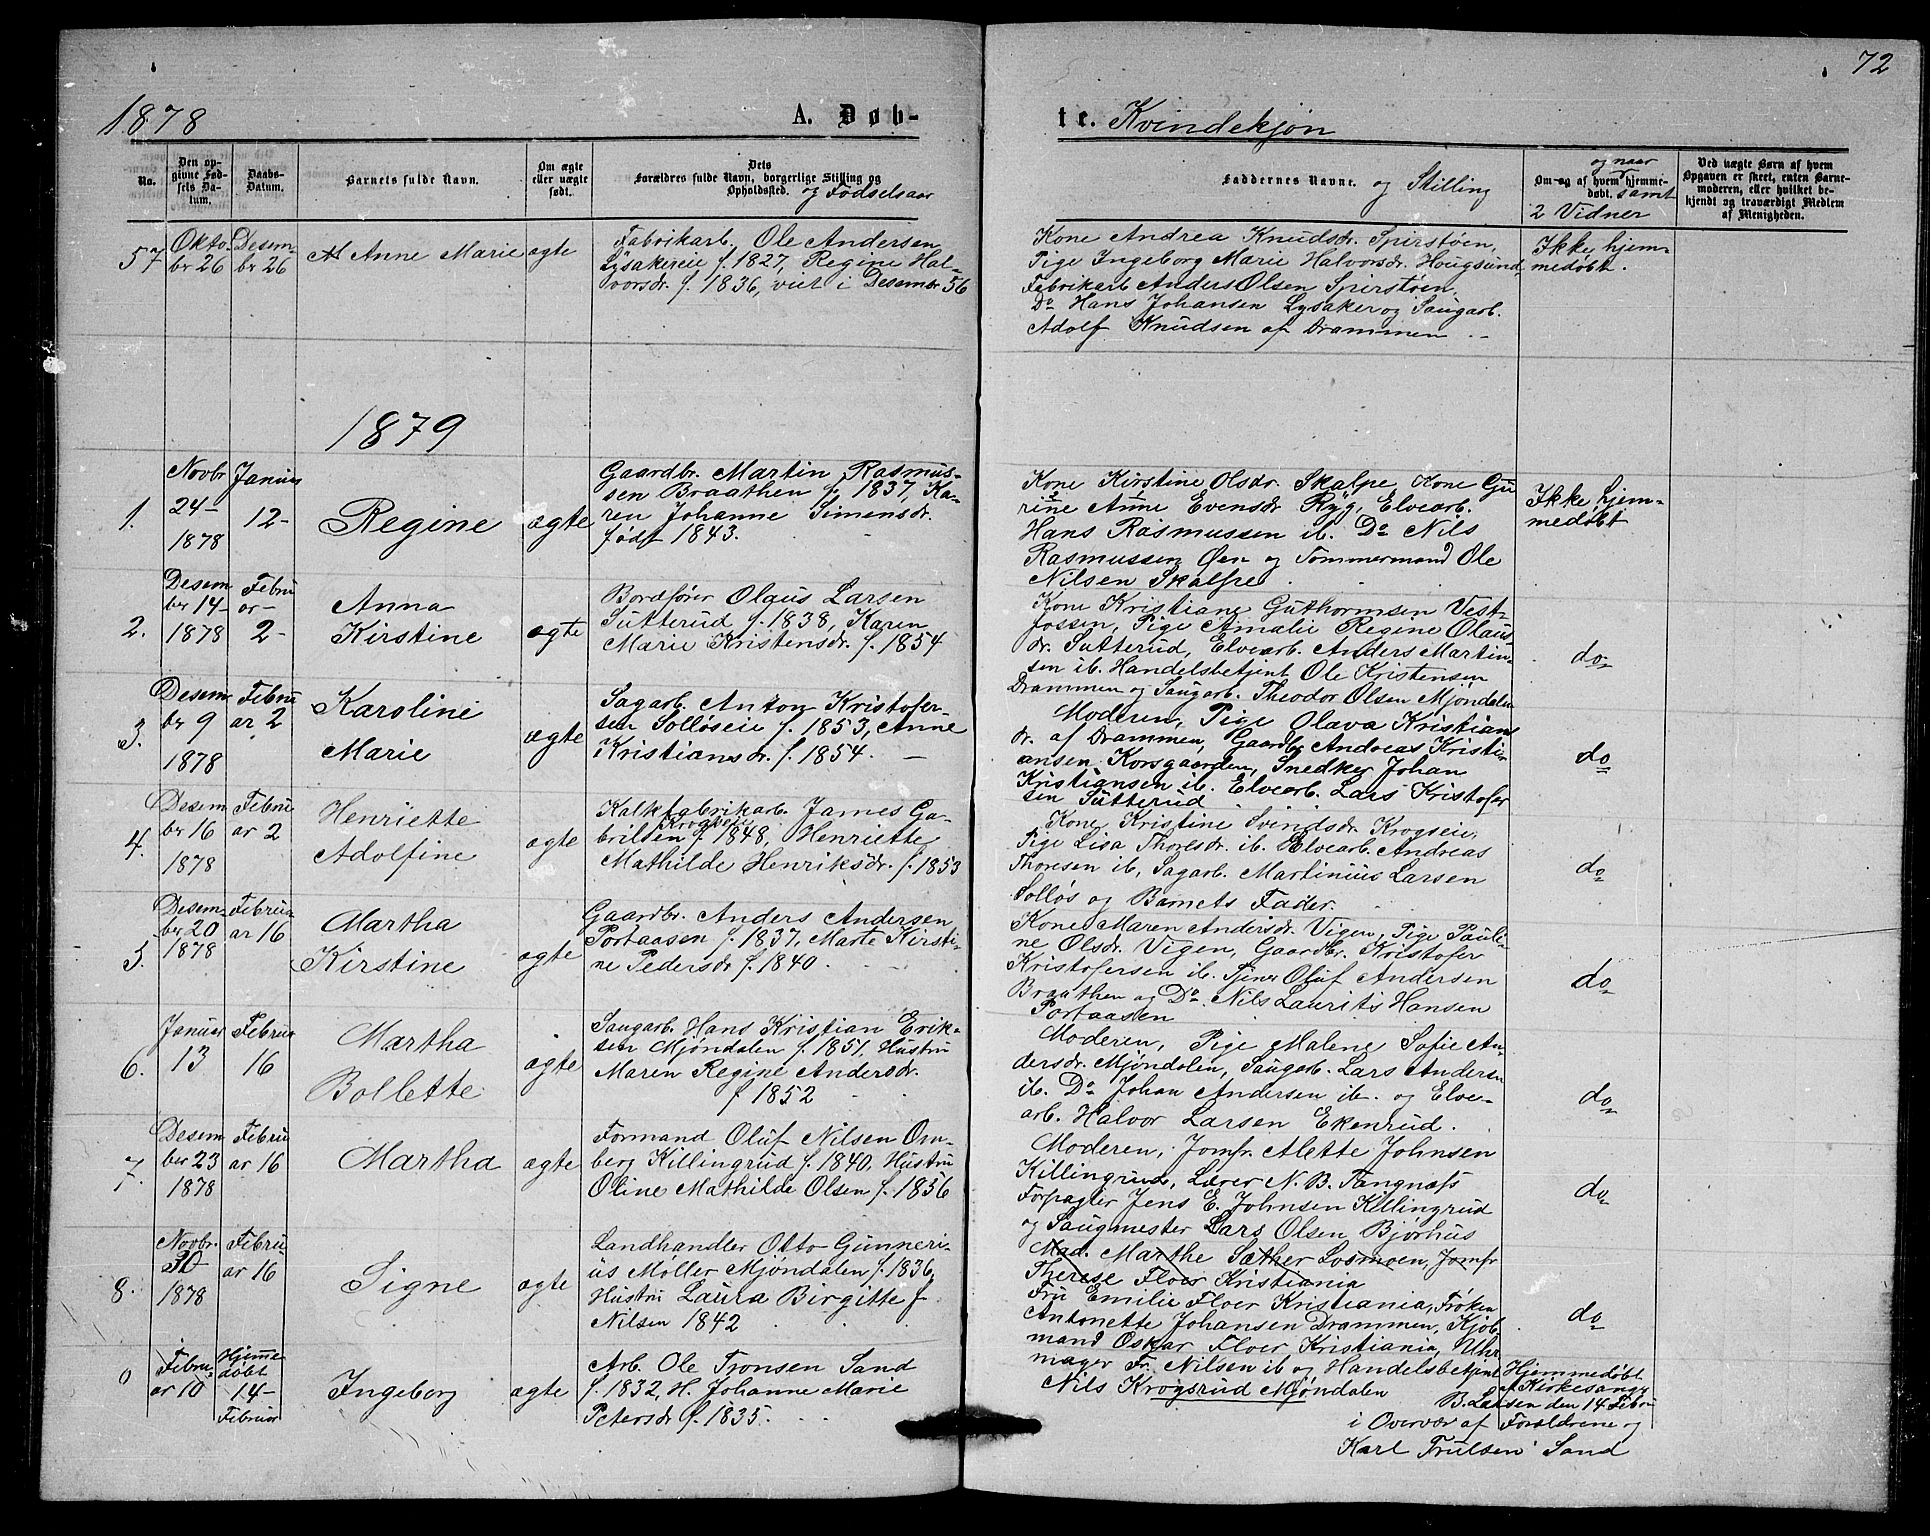 72
1878
A. Døb-
te. Kvindekjøn
No.
Den op-
givne Fød-
sels Da-
tum.
Daabs-
Datum.
Barnets fulde Navn.
Om ægte
eller uægte
født.
Dets
Forældres fulde Navn, borgerlige Stilling og
Opholdssted. og Fødselsaar
Faddernes Navne. og Stilling
og naar
Om og af hvem hjemme-
døbt. samt
2 Vidner
Ved uægte Børn af hvem
Opgaven er skeet, enten Barne-
moderen, eller hvilket be-
kjendt og troværdigt Medlem
af Menigheden.
57
Okto-
br 26
Desem-
br 26
Anne Marie
ægte
Fabrikarb. Ole Andersen
Lysakereie f. 1827, Regine Hal-
vorsdr. f. 1836, viet i Desembr 56
Kone Andrea Knudsdr. Spirstøen,
Pige Ingeborg Marie Halvorsdr. Hougsund,
Fabrikarb Anders Olsen Spirstøen,
Do Hans Johansen Lysaker og Saugarb.
Adolf Knudsen af Drammen
Ikke hjem-
medøbt.
1879
1.
Novbr
24
1878
Januar
12-
Regine
ægte
Gaardbr. Martin Rasmus-
sen Braathen f. 1837, Ka-
ren Johanne Simensdr.
født 1843.
Kone Kirstine Olsdr. Skalpe, Kone Gu
rine Anne Evensdr Ryg, Elvearb.
Hans Rasmussen ib. Do Nils
Rasmussen Øen og Tømmermand Ole
Nilsen Skalpe
Ikke hjem-
medøbt
2.
Desem
ber 14-
1878
Febru
ar-
2-
Anna
Kirstine
ægte
Bordfører Olaus Larsen
Sutterud f. 1838, Karen
Marie Kristensdr. f. 1854
Kone Kristiane Guthormsen Vest-
fossen, Pige Amalie Regine Olaus
dr. Sutterud, Elvearb. Anders Martin-
sen ib. Handelsbetjent Ole Kristensen
Drammen og Saugarb. Theodor Olsen Mjøndalen
do
3.
Desem
br 9
1878
Febru
ar 2
Karoline
Marie
ægte
Sagarb. Anton Kristofer-
sen Solløseie f. 1853, Anne
Kristiansdr. f. 1854.
Moderen, Pige Olava Kristians
dr. af Drammen, Gaardbr Andreas Kristi-
ansen Korsgaarden, Snedker Johan
Kristiansen ib. Elvearb. Lars Kristofer
sen Sutterud
do
4.
Desem
br 16
1878
Febru
ar 2
Henriette
Adolfine
ægte
Kalkfabrikarb. James Ga-
Krogseie
brilsen f 1848, Henriette
Mathilde Henriksdr. f. 1853
Kone Kristine Svendsdr. Krogseie,
Pige Lisa Thoresdr. ib. Elvearb. Andreas
Thoresen ib, Sagarb. Martinius Larsen
Solløs og Barnets Fader.
do
5.
Desem-
ber 20
1878
Februa
ar 16
Martha
Kirstine
ægte
Gaardbr. Anders Andersen
Portaasen f. 1837, Marte Kirsti-
ne Pedersdr f. 1840.
Kone Maren Andersdr. Vigen, Pige Pauli-
ne Olsdr. Vigen, Gaardbr. Kristofer
Kristofersen ib. Tjener Oluf Andersen
Braathen og Do. Nils Laurits Hansen
Portaasen
do
6.
Januar
13
Februa
16
Martha
Bollette
ægte
Saugarb. Hans Kristian Erik-
sen Mjøndalen f. 1851, Hustru
Maren Regine Andersdr.
f 1852
Moderen, Pige Malene Sofie An-
dersdr. Mjøndalen, Saugarb. Lars Andersen
ib. Do Johan Andersen ib. og Elve-
arb. Halvor Larsen Ekenrud.
do
7.
Desem-
ber 23
1878
Febru
ar 16
Martha
ægte
Formand Oluf Nilsen Om-
berg Killingrud f. 1840, Hustru
Oline Mathilde Olsen f. 1856
Moderen, Jomfr. Alette Johnsen
Killingrud, Lærer N. B. Tangnæss
Forpagter Jens E. Johnsen Killingrud
og Saugmester Lars Olsen Bjørhus
do
8.
Novbr.
30
1878
Febru
ar 16
Signe
ægte
Landhandler Otto Gunneri-
us Møller Mjøndalen f. 1836,
Hustru Laura Birgitte f
Nilsen 1842
Mad. Marthe Sæther Losmoen, Jomfr
Therese Floer Kristiania
Fru Emilie Floer Kristiania, Frøken
Antonette Johansen Drammen, Kjøb-
mand Oskar Floer Kristiania, Uhr
mager Fr. Nilsen ib og Handelsbetjent
Nils Krogsrud Mjøndalen
do
9
Febru
ar 10
Hjemme
døbt
14-
Februar
Ingeborg
ægte
Arb. Ole Tronsen Sand
f. 1832, H. Johanne Marie
Petersdr f. 1835.
Hjemmedøbt
af Kirkesanger
B. Larsen den 14 Febru
i Overvær af Forældrene og
Karl Trulsen Sand